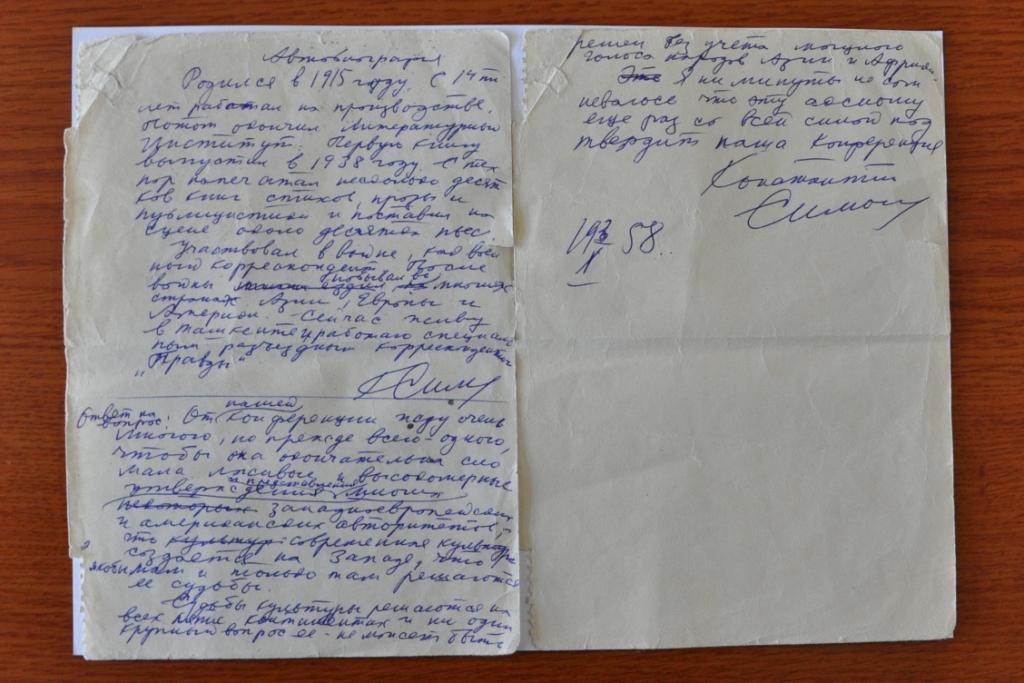 Автобиография
Родился в 1915 году. С 14ти
лет работал на производстве.
Потом окончил Литературный
Институт. Первую книгу
выпустил в 1938 году. С тех
пор напечатал несколько десят
ков книг стихов, прозы и
публицистики и поставил на
сцене около десятка пьес.
Участвовал в войне, как воен
ный корреспондент. После
войны побывал во многих
странах Азии, Европы и
Америки. Сейчас живу
в Ташкенте и работаю специаль
ным разъездным корреспондентом
"Правды".
К Сим
Ответ на вопрос: От нашей конференции жду очень
многого, но прежде всего - одного,
чтобы она окончательно сло
мала лживые и высокомерные
утверждения и представления многих
некоторых западноевропейских
и американских авторитетов,
что культур современная культура
создается на Западе, что
якобы там и только там решаются
ее судьбы.
Судьбы культуры решаются на
всех пяти континентах и ни один
крупный вопрос ее - не может быть
решен без учета мощного
голоса народов Азии и Африки.
Это Я ни минуты не сом
неваюсь что эту аксиому
еще раз со всей силой под
твердит наша Конференция
Константин
Симон
58.